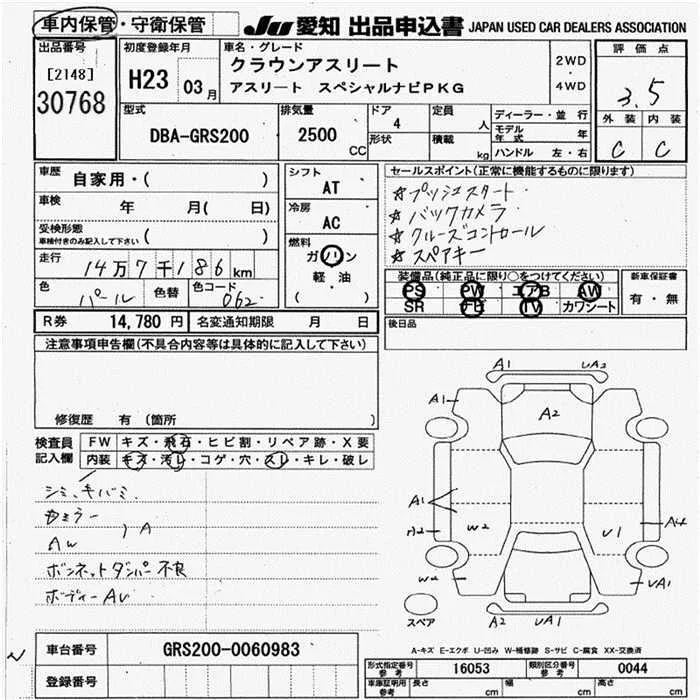 車内保管・守衛保管
JU 愛知 出品申込書 JAPAN USED CAR DEALERS ASSOCIATION
出品番号
[2148]
30768
初度登録年月
H23 03月
車名・グレード
クラウンアスリート
アスリート スペシャルナビPKG
2WD
・
4WD
評価点
3.5
外装 内装
C C
型式
DBA-GRS200
排気量
2500
CC
ドア
4
形状
定員
人
積載
kg
ディーラー・並行
モデル年式 年
ハンドル 左・右
車歴
自家用・( )
車検
年 月( 日)
受検形態
車検付きのみ記入して下さい ( )
走行
14万7千186km
色
パール
色替
色コード
062
シフト
AT
冷房
AC
燃料
ガソリン
軽・油
( )
セールスポイント(正常に機能するものに限ります)
☆プッシュスタート
☆バックカメラ
☆クルーズコントロール
☆スペアキー
装備品(純正品に限り○をつけてください)
PS PW エアB AW
SR ナビ TV カワシート
新車保証書
有・無
後日品
R券 14,780円 名変通知期限 月 日
注意事項申告欄(不具合内容等は具体的に記入して下さい)
修復歴 有(箇所 )
検査員記入欄
FW キズ・飛石・ヒビ割・リペア跡・X要
内装 キズ・汚レ・コゲ・穴・スレ・キレ・破レ
シミ、キバミ
AW
A
ボンネットダンパー不良
ボディーAU
A1 UA2
A1
A2
A1
A2
W2
U1
A4
W2
UA1
A2 UA1
スペア
A-キズ E-エクボ U-凹み W-補修跡 S-サビ C-腐食 XX-交換済
車台番号 GRS200-0060983
登録番号
形式指定番号参考 16053 類別区分番号参考 0044
車庫証明用参考 長さ cm 幅 cm 高さ cm